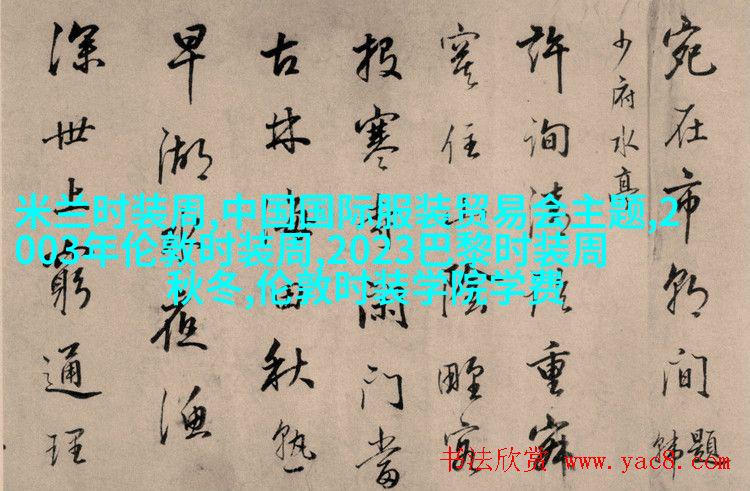 宛在市朝间
題韩
少府水亭
許詢清重
住陰野
报寒閑门當
古林田秋熟
早湖夜漁
深世上窮通理
米兰时装周,中国国际服装贸易会主题,2
003年伦敦时装周,2023巴黎时装周
秋冬,伦敦时装学院学费
书法欣赏 www.yac8.com